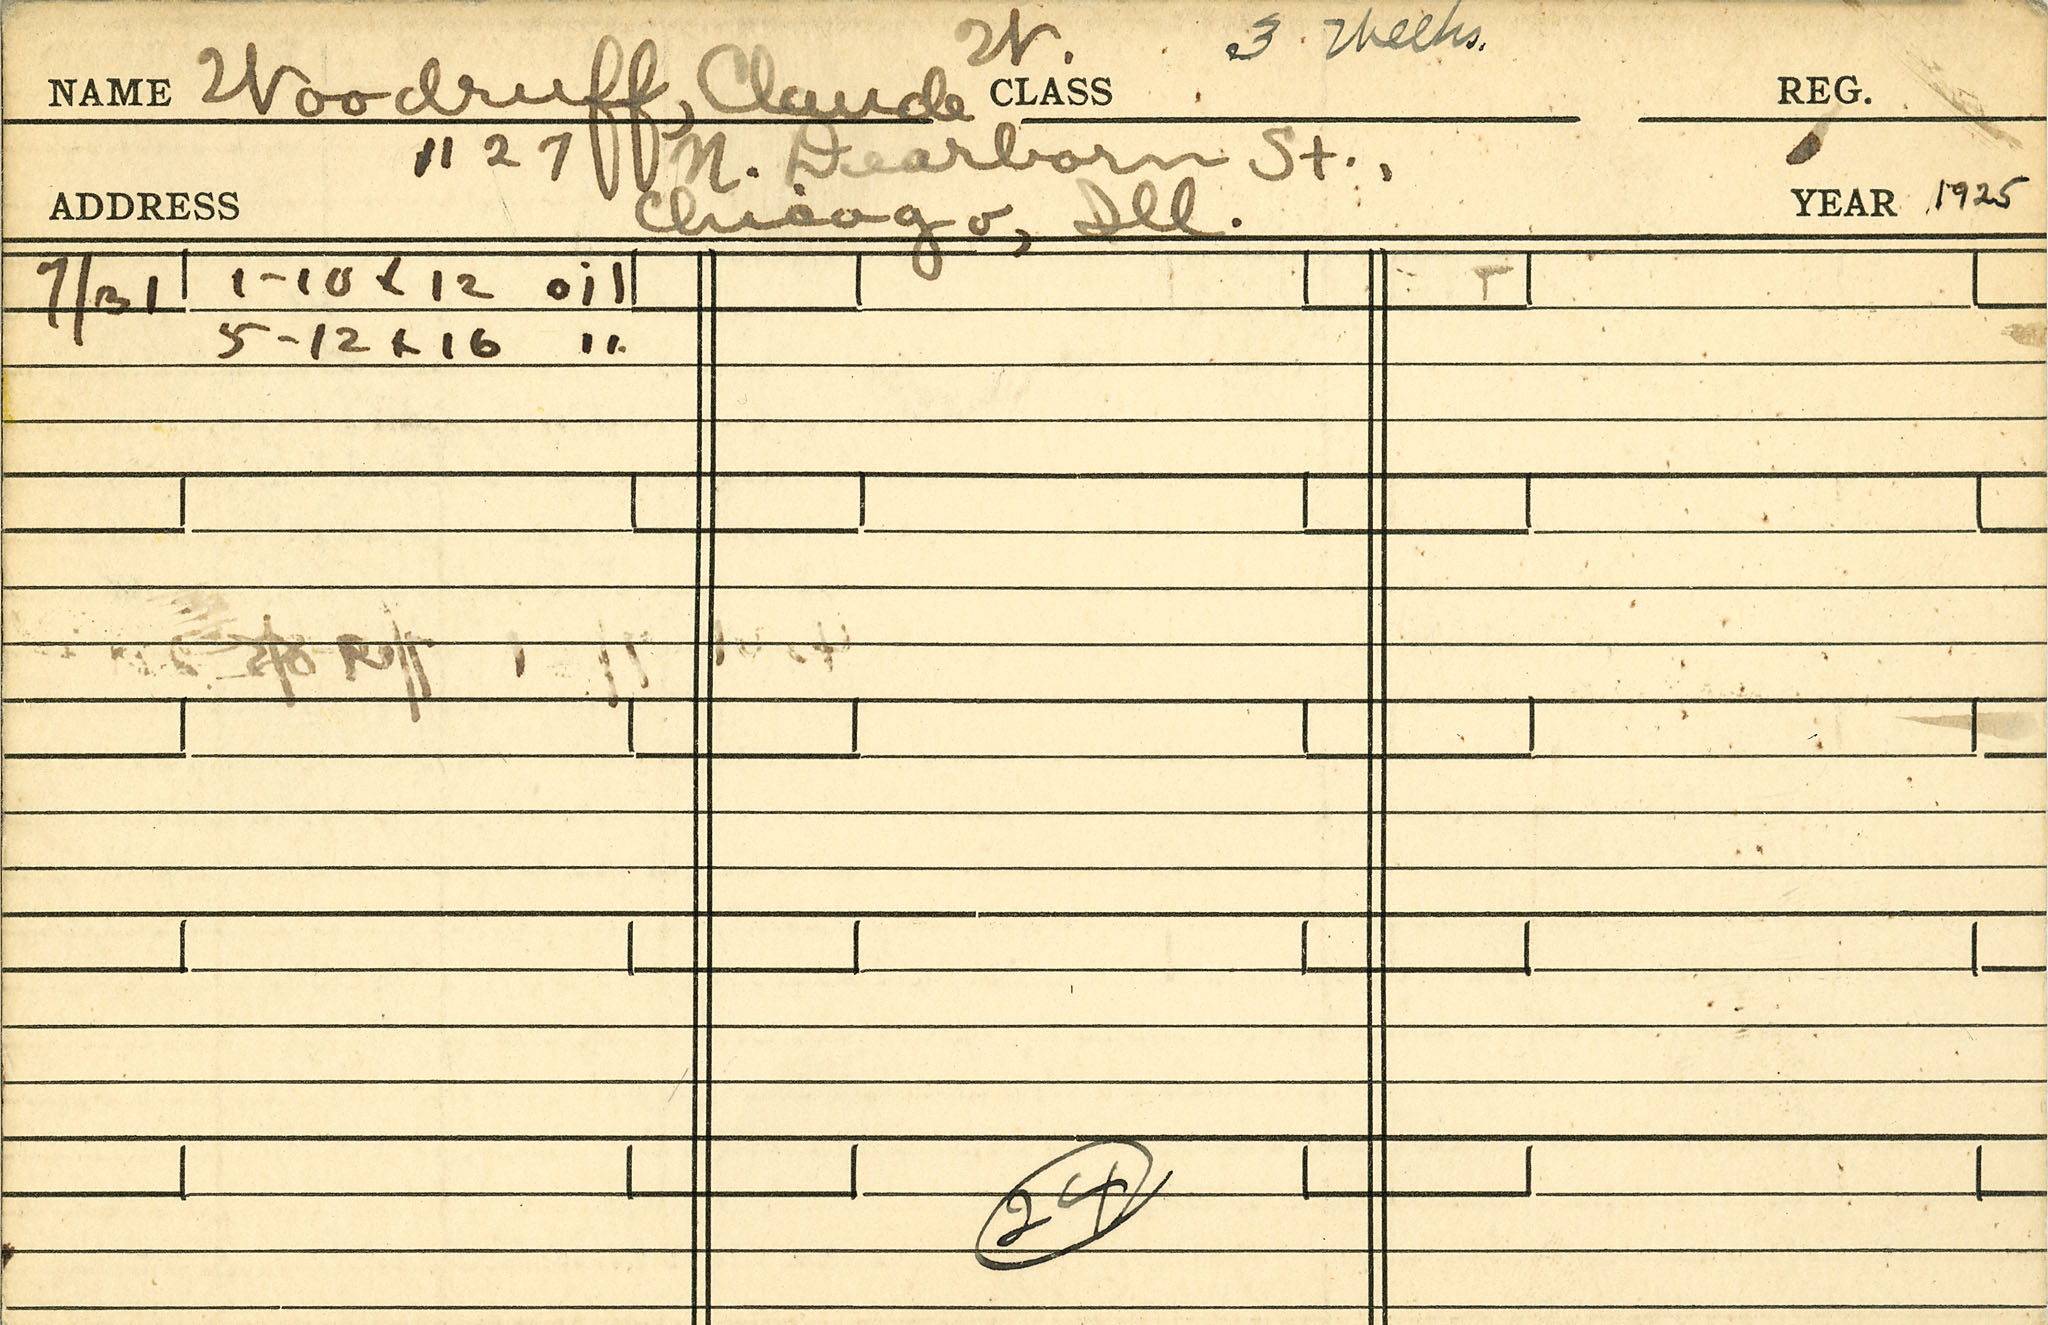 W. 3 Weeks.
NAME Woodruff, Claude CLASS REG.
1127 N. Dearborn St.,
ADDRESS Chicago, Ill. YEAR 1925
7/31 1-10 x 12 oil
5-12 x 16 "
24